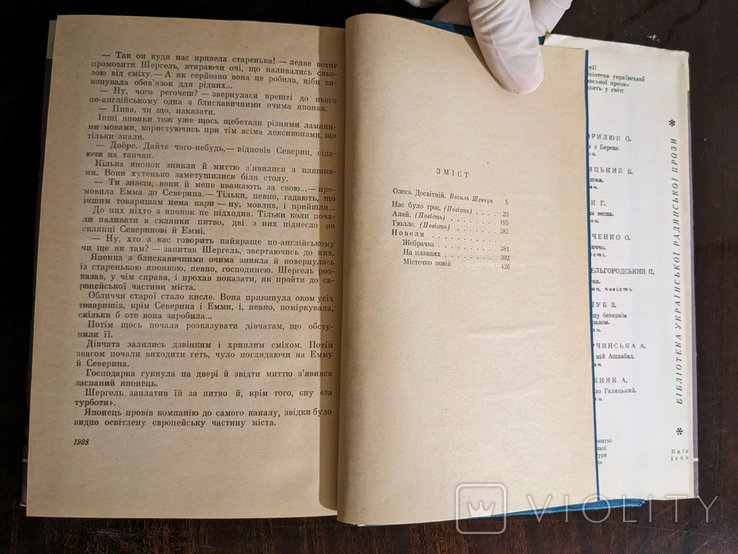 — Так он куди нас привела старенька! — ледве встиг
промовити Шергель, втираючи очі, що наливались сльо-
зою від сміху.— А як серйозно вона це робила, ніби ви-
конувала обов'язок для рідних...
— Ну, чого регочеш? — звернулася врешті до нього
по-англійському одна з блискавичними очима японка.
— Пива, чи що, наказати.
Інші японки теж уже щось щебетали різними ламани-
ми мовами, користуючись при тім всіма лексиконами, що
тільки знали.
— Добре. Дайте чого-небудь,— відповів Северин, сіда-
ючи на тапчан.
Кілька японок зникли й миттю з'явилися з пляшка-
ми. Вони хутенько заметушилися біля столу.
— Ти знаєш, вони й мене вважають за свою...— про-
мовила Емма до Северина.— Тільки, певно, гадають, що
іншим товаришам нема пари — ну, мовляв, і прийшли...
До них ніхто з японок не підходив. Тільки коли поча-
ли наливати в склянки питво, дві з них піднесло по
склянці Северинові й Еммі.
— Ну, хто з вас говорить найкраще по-англійському
чи ще як там? — запитав Шергель, звертаючись до них.
Японка з блискавичними очима зникла й повернулась
із старенькою японкою, певно, господинею. Шергель роз-
казав, у чім справа, і прохав наказати, як пройти до єв-
ропейської частини міста.
Обличчя старої стало кисле. Вона прикинула оком усіх
товаришів, крім Северина і Емми, і, певно, поміркувала,
скільки б ото вона заробила...
Потім щось почала розказувати дівчатам, що обсту-
пили її.
Дівчата залились дзвінким і хриплим сміхом. Потім
звагом почали виходити геть, чуло поглядаючи на Емму
й Северина.
Господарка гукнула на двері й звідти миттю з'явився
заспаний японець.
Шергель заплатив їй за питво й, крім того, ену «за
турботи».
Японець провів компанію до самого каналу, звідки було
видно освітлену європейську частину міста.
1928
ЗМІСТ
Олесь Досвітній. Василь Шевчук 5
Нас було троє. (Повість) 23
Алай. (Повість) 195
Гюлле. (Повість) 285
Новели
Жебрачка 381
На плавнях 392
Містечко повій 426
української
прози»
світ:
РИЛЮК О.
з Береза.
ИЦЬКИЙ В.
К Г.
ЧЕНКО О.
ЕЛЬГОРОДСЬКИЙ П.
повісті
УБ З.
ралом.
РЧИНСЬКА А.
мій Ашхабад.
ЖНЯК А.
Галицький.
БІБЛІОТЕКА УКРАЇНСЬКОЇ РАДЯНСЬКОЇ ПРОЗИ
Київ
VIOLITY